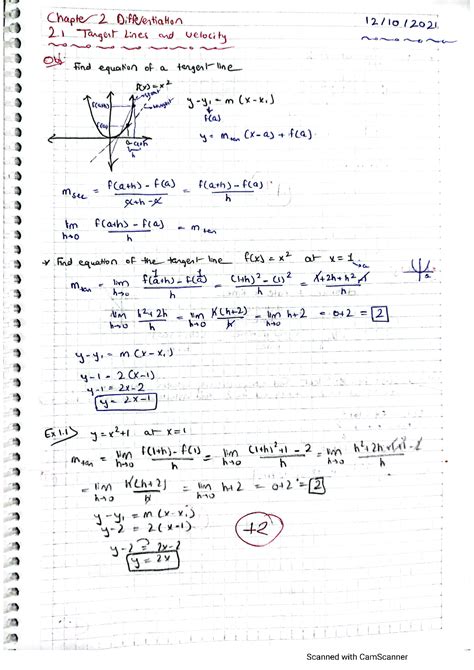 Chapter 2 Differentiation 12/10/2021
2.1 Tangent Lines and velocity
Obj Find equation of a tangent line
f(x) = x²
f(a+h)
f(a)
a a+h
h
y - y₁ = m (x - x₁)
f(a)
y = m_tan (x-a) + f(a)
m_sec = f(a+h) - f(a) / a+h - a = f(a+h) - f(a) / h
lim h→0 f(a+h) - f(a) / h = m_tan
* Find equation of the tangent line f(x) = x² at x = 1 → a
m_tan = lim h→0 f(a+h) - f(a) / h = (1+h)² - (1)² / h = 1+2h+h²-1 / h
lim h→0 h²+2h / h = lim h→0 h(h+2) / h = lim h→0 h+2 = 0+2 = 2
y - y₁ = m (x - x₁)
y - 1 = 2 (x-1)
y - 1 = 2x - 2
y = 2x - 1
Ex 1.1) y = x²+1 at x = 1
m_tan = lim h→0 f(1+h) - f(1) / h = lim h→0 (1+h)²+1 - 2 / h = lim h→0 h²+2h+1+1-2 / h
= lim h→0 h(h+2) / h = lim h→0 h+2 = 0+2 = 2
y - y₁ = m (x - x₁)
y - 2 = 2 (x - 1)
y - 2 = 2x - 2
y = 2x
+2
Scanned with CamScanner